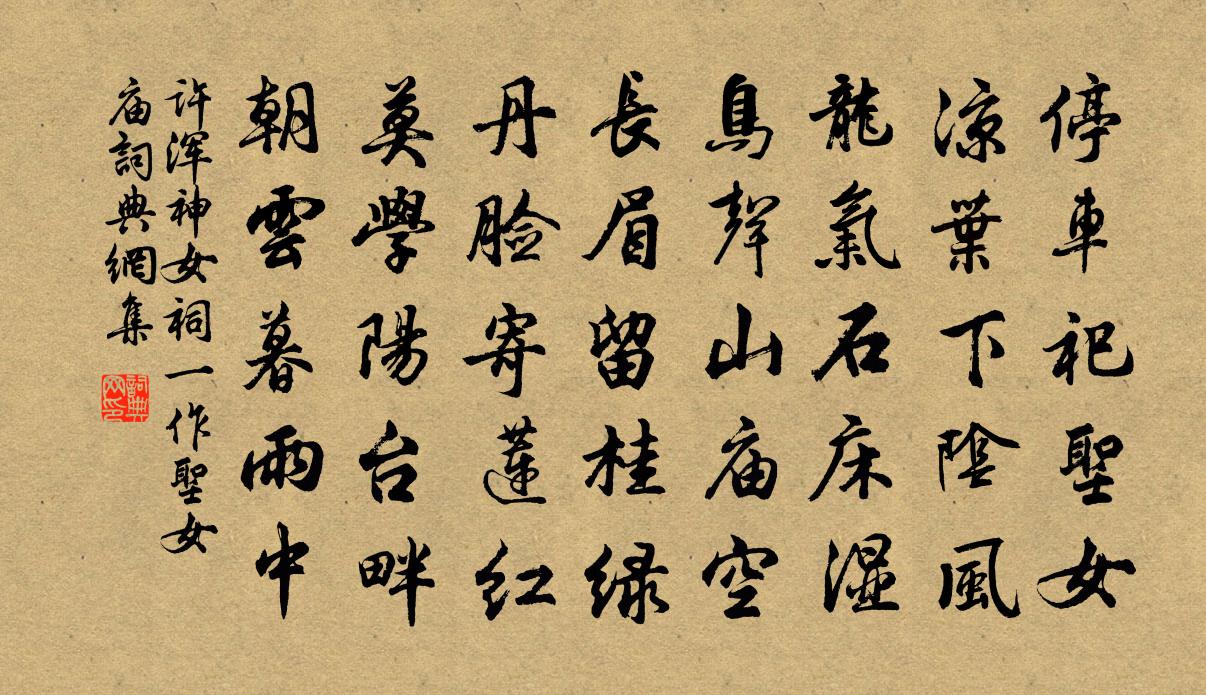 停車祀聖女
涼葉下陰風
龍氣石床濕
鳥聲山庙空
長眉留桂綠
丹脸寄蓮紅
莫學陽台畔
朝雲暮雨中
许渾神女祠一作聖女
庙詞典網集
詞典网印